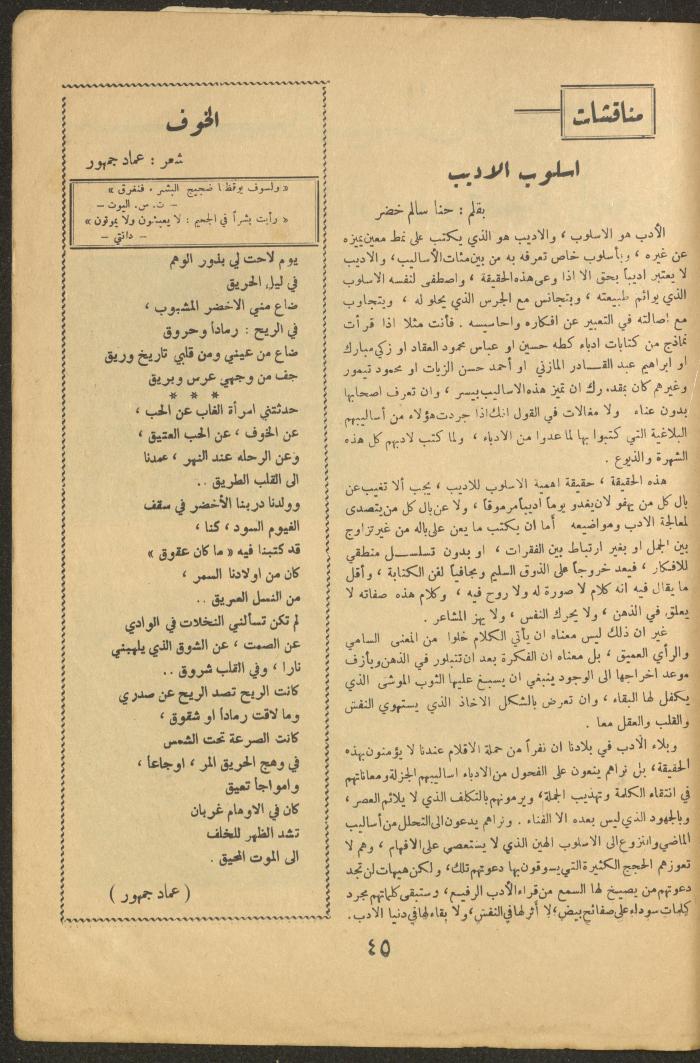 مناقشات
اسلوب الاديب
بقلم : حنا سالم خضر
الأدب هو الاسلوب ، والاديب هو الذي يكتب على نمط معين يميزه
عن غيره ، وبأسلوب خاص تعرفه به من بين مئات الأساليب ، والاديب
لا يعتبر اديباً بحق الا اذا وعى هذه الحقيقة ، واصطفى لنفسه الاسلوب
الذي يوائم طبيعته ، ويتجانس مع الجرس الذي يحلو له ، ويتجاوب
مع اصالته في التعبير عن افكاره واحاسيسه . فأنت مثلا اذا قرأت
نماذج من كتابات ادباء كطه حسين او عباس محمود العقاد او زكي مبارك
او ابراهيم عبد القادر المازني او أحمد حسن الزيات او محمود تيمور
وغيرهم كان بمقدورك ان تميز هذه الاساليب بيسر ، وان تعرف اصحابها
بدون عناء ولا مغالات في القول انك اذا جردت هؤلاء من أساليبهم
البلاغية التي كتبوا بها لما عدوا من الادباء ، ولما كتب لادبهم كل هذه
الشهرة والذيوع .
هذه الحقيقة ، حقيقة اهمية الاسلوب للاديب ، يجب ألا تغيب عن
بال كل من يهفو لان يغدو يوماً اديباً مرموقاً ، ولا عن بال كل من يتصدى
لمعالجة الادب ومواضيعه أما ان يكتب ما يعن على باله من غير تزاوج
بين الجمل او بغير ارتباط بين الفقرات ، او بدون تسلسل منطقي
للافكار ، فيعد خروجاً على الذوق السليم ومجافياً لفن الكتابة ، وأقل
ما يقال فيه انه كلام لا صورة له ولا روح فيه ، وكلام هذه صفاته لا
يعلق في الذهن ، ولا يحرك النفس ، ولا يهز المشاعر .
غير ان ذلك ليس معناه ان يأتي الكلام خلوا من المعنى السامي
والرأي العميق ، بل معناه ان الفكرة بعد ان تتبلور في الذهن ويأزف
موعد اخراجها الى الوجود ينبغي ان يسبغ عليها الثوب الموشى الذي
يكفل لها البقاء ، وان تعرض بالشكل الاخاذ الذي يستهوي النفس
والقلب والعقل معا .
وبلاء الأدب في بلادنا ان نفراً من حملة الاقلام عندنا لا يؤمنون بهذه
الحقيقة ، بل نراهم ينعون على الفحول من الادباء اساليبهم الجزلة ومعاناتهم
في انتقاء الكلمة وتهذيب الجملة ، ويرمونهم بالتكلف الذي لا يلائم العصر ،
وبالجهود الذي ليس بعده الا الفناء . ونراهم يدعون الى التحلل من أساليب
الماضي والنزوع الى الاسلوب الهين الذي لا يستعصي على الافهام ، وهم لا
تعوزهم الحجج الكثيرة التي يسوقون بها دعوتهم تلك ، ولكن هيهات لن تجد
دعوتهم من يصيخ لها السمع من قراء الأدب الرفيع ، وستبقى كلماتهم مجرد
كلمات سوداء على صفائح بيض ، لا أثر لها في النفس ، ولا بقاء لها في دنيا الادب .
الخوف
شعر : عماد جمهور
« ولسوف يوقظنا ضجيج البشر ، فنغرق »
– ت . س . اليوت –
« رأيت بشراً في الجحيم : لا يعيشون ولا يموتون »
– دانتي –
يوم لاحت لي بذور الوهم
في ليل الحريق
ضاع مني الاخضر المشبوب ،
في الريح : رماداً وحروق
ضاع من عيني ومن قلبي تاريخ وريق
جف من وجهي عرس وبريق
* * *
حدثتني امرأة الغاب عن الحب ،
عن الخوف ، عن الحب العتيق ،
وعن الرحله عند النهر ، عمدنا
الى القلب الطريق ..
وولدنا دربنا الأخضر في سقف
الغيوم السود ، كنا ،
قد كتبنا فيه « ما كان عقوق »
كان من اولادنا السمر ،
من النسل العريق ..
لم تكن تسألني النخلات في الوادي
عن الصمت ، عن الشوق الذي يلهبني
نارا ، وفي القلب شروق ..
كانت الريح تصد الريح عن صدري
وما لاقت رماداً او شقوق ،
كانت الصرعة تحت الشمس
في وهج الحريق المر ، اوجاعاً ،
وامواجاً تعيق
كان في الاوهام غربان
تشد الظهر للخلف
الى الموت المحيق .
( عماد جمهور )
٤٥